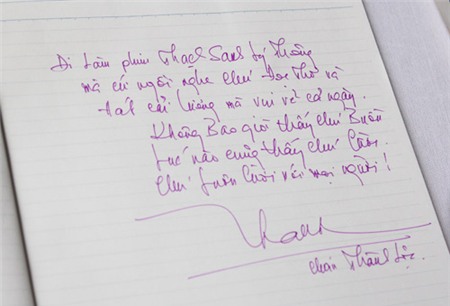 Đi làm phim Thạch Sanh Lý Thông
mà cứ ngồi nghe chú đọc thơ và
hát cải lương mà vui vẻ cả ngày.
Không Bao giờ thấy chú Buồn
Lúc nào cũng thấy chú Cười.
Chú luôn Cười với mọi người!
Thành Lộc.